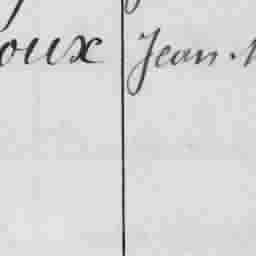 oux Jean.